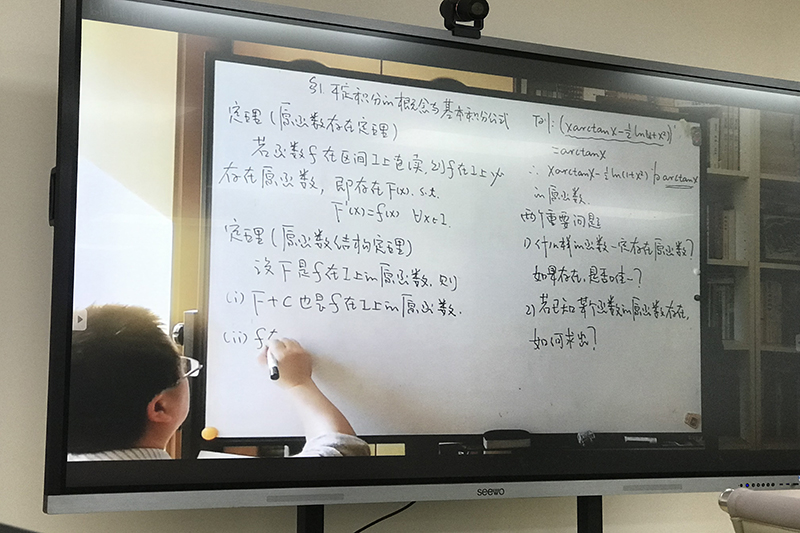 §1 不定积分的概念与基本积分公式
定理(原函数存在定理)
若函数f在区间I上连续,则f在I上必
存在原函数,即存在F(x), s.t.
F'(x)=f(x) ∀x∈I.
定理(原函数结构定理)
设F是f在I上的原函数,则
(i) F+C也是f在I上的原函数.
(ii) f在
例: (xarctanx-½ln(1+x²))'
=arctanx
∴ xarctanx-½ln(1+x²)为arctanx
的原函数.
两个重要问题
1) 什么样的函数一定存在原函数?
如果存在,是否唯一?
2) 若已知某个函数的原函数存在,
如何求出?
seewo